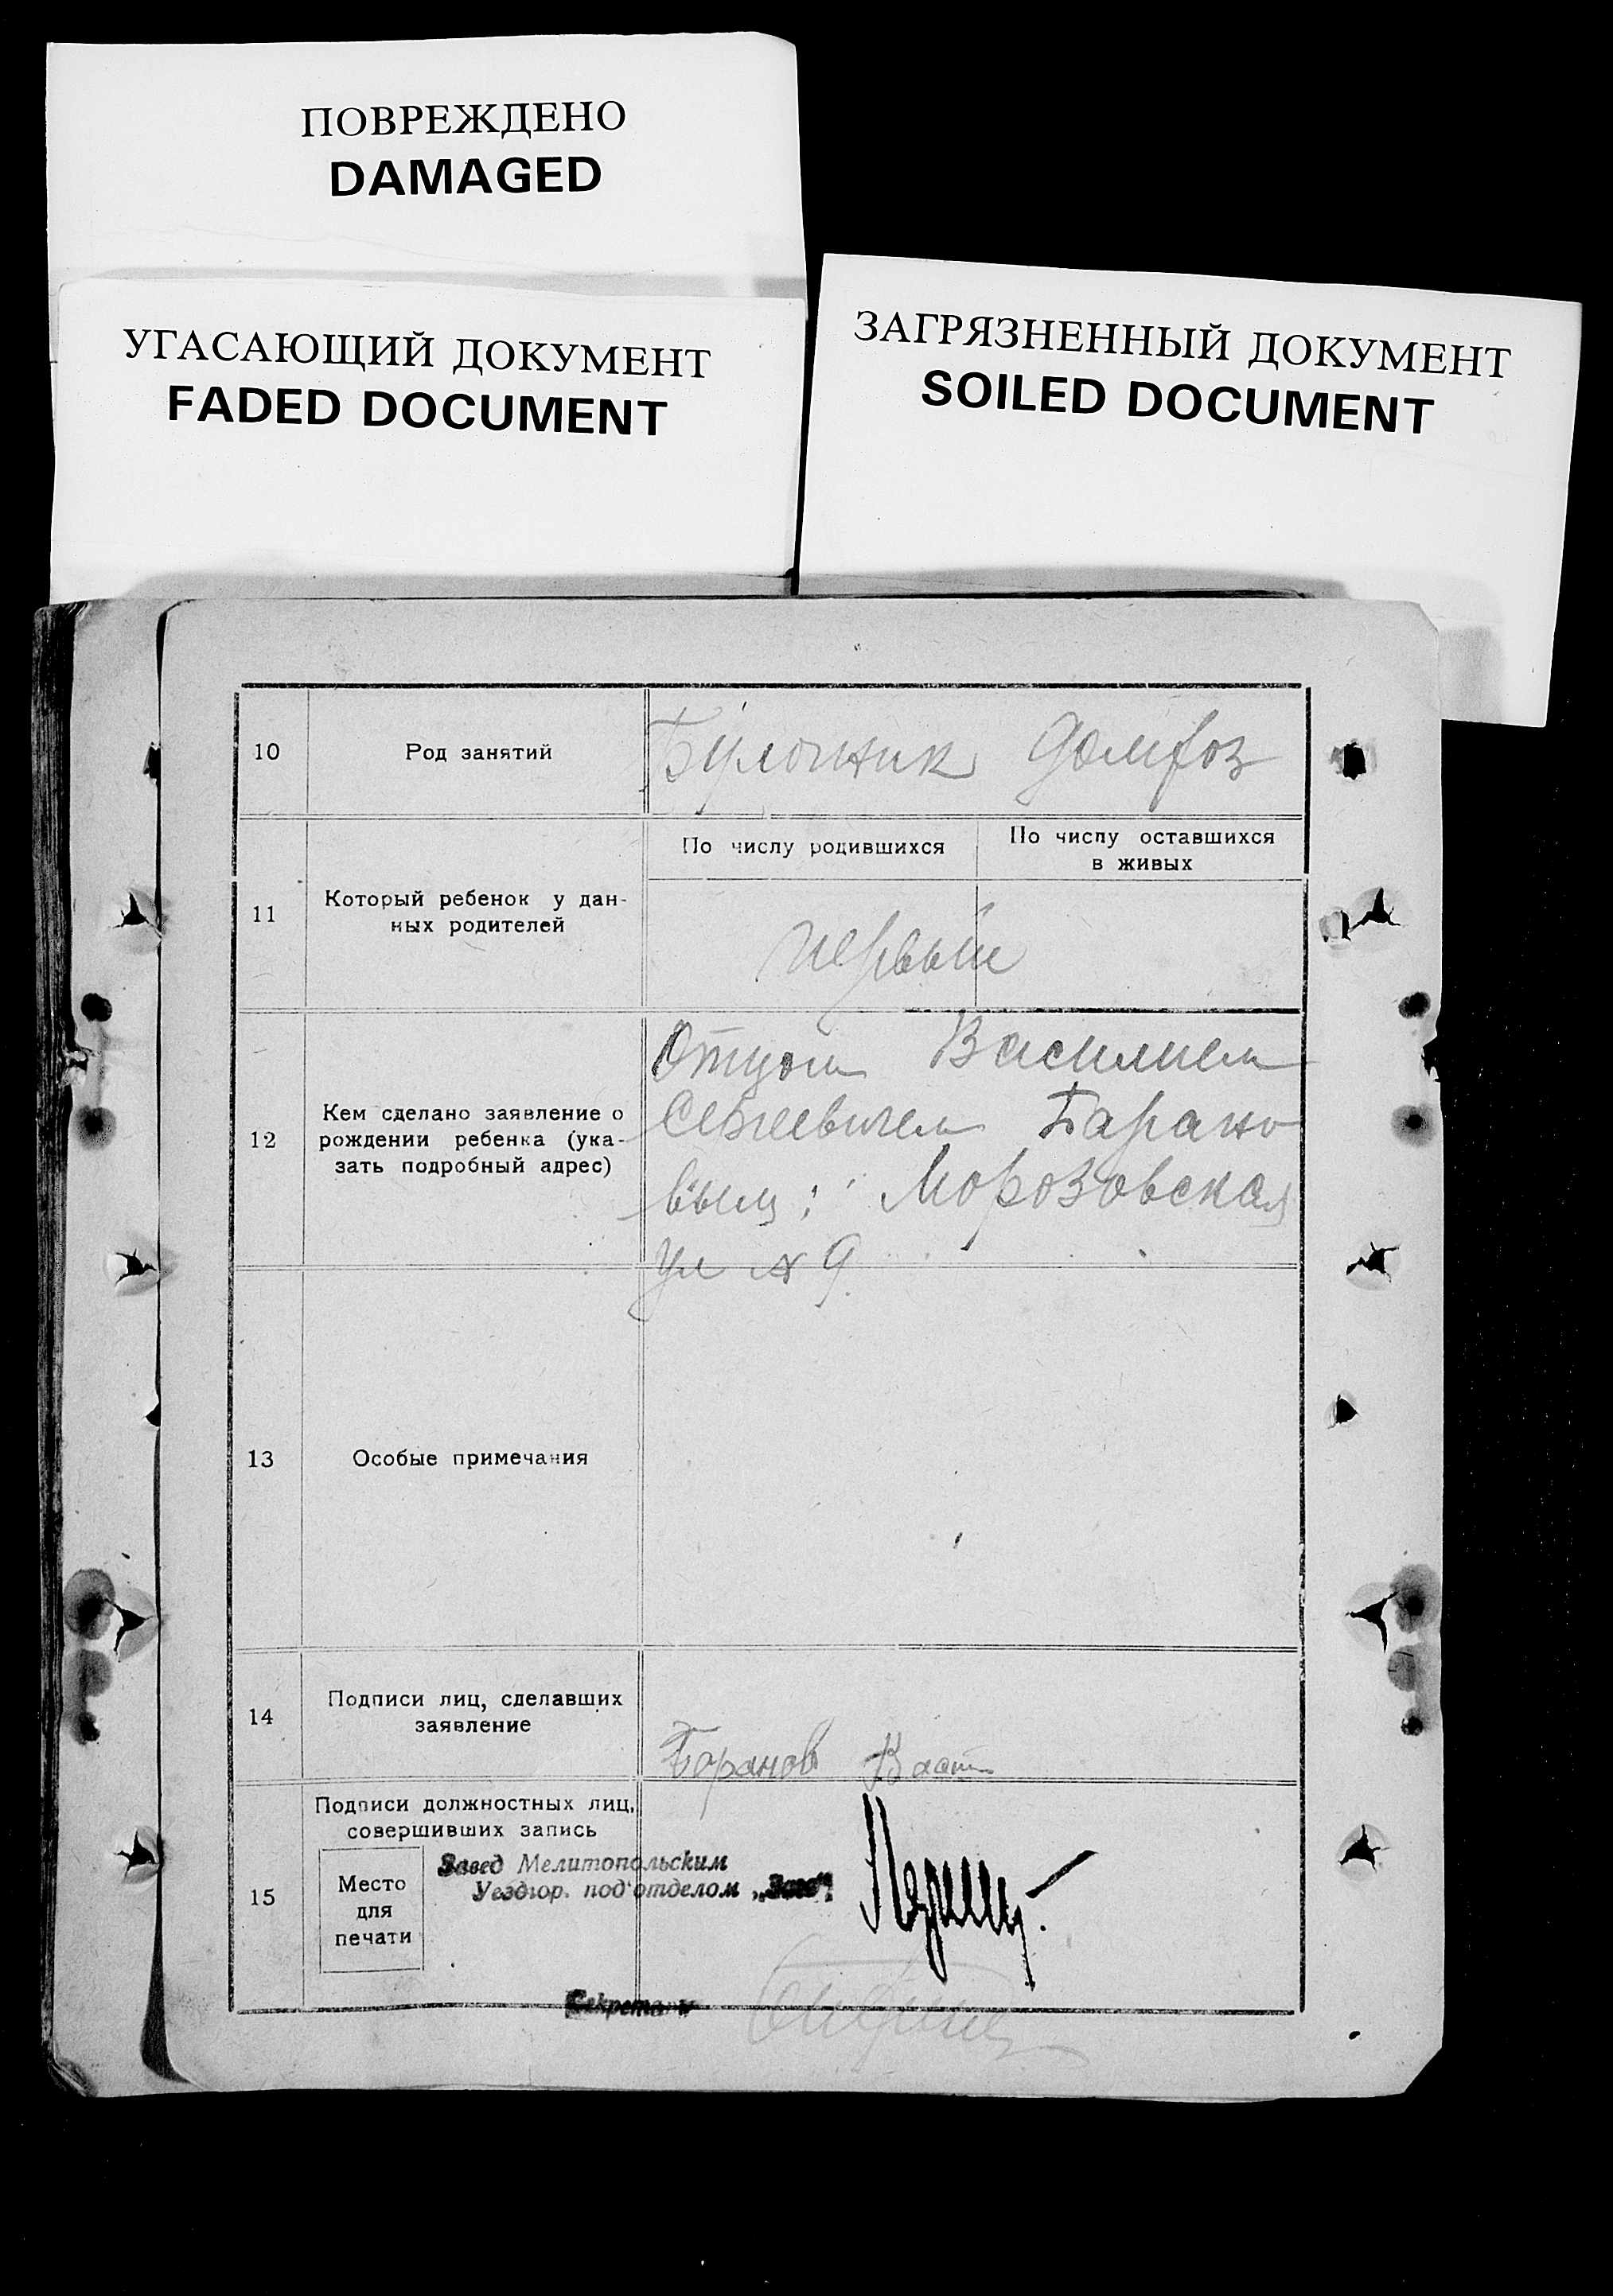 ПОВРЕЖДЕНО
DAMAGED
УГАСАЮЩИЙ ДОКУМЕНТ
FADED DOCUMENT
ЗАГРЯЗНЕННЫЙ ДОКУМЕНТ
SOILED DOCUMENT
10
Род занятий
Булочник Домхоз
11
Который ребенок у дан-
ных родителей
По числу родившихся
По числу оставшихся
в живых
первый
12
Кем сделано заявление о
рождении ребенка (ука-
зать подробный адрес)
Отцом Василием
Сергеевичем Барано
вым; Морозовская
ул № 9
13
Особые примечания
14
Подписи лиц, сделавших
заявление
Баранов
15
Подписи должностных лиц,
совершивших запись
Место
для
печати
Завед Мелитопольским
Уездгор. под'отделом „Загс“
Секретарь